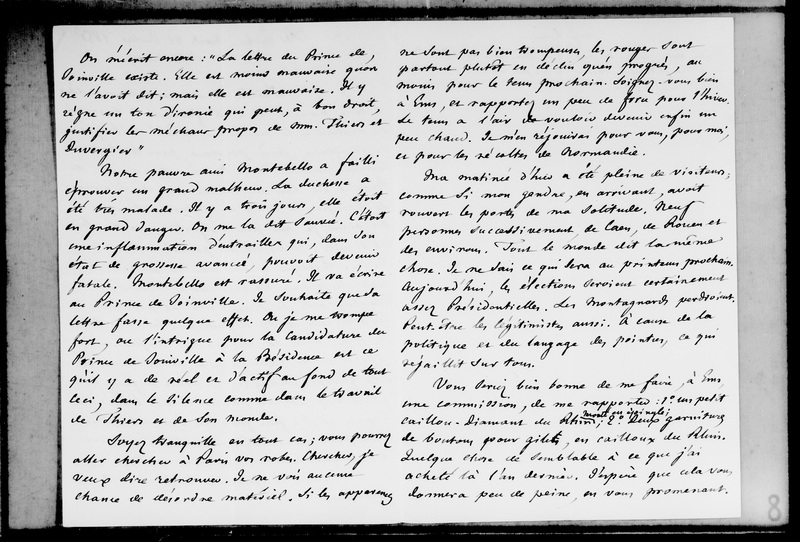 On m'écrit encore : "La lettre du Prince de
Joinville existe. Elle est moins mauvaise qu'on
ne l'avoit dit ; mais elle est mauvaise. Il y
règne un ton d'ironie qui peut, à bon droit,
justifier les méchans propos de mm. Thiers et
Duvergier"
Notre pauvre ami Montebello a failli
éprouver un grand malheur. La duchesse a
été très malade. Il y a trois jours, elle étoit
en grand danger. On me la dit sauvée. C'étoit
une inflammation d'entrailles qui, dans son
état de grossesse avancée, pouvoit devenir
fatale. Montebello est rassuré. Il va écrire
au Prince de Joinville. Je souhaite que sa
lettre fasse quelque effet. Ou je me trompe
fort, ou l'intrigue pour la candidature du
Prince de Joinville à la Présidence est ce
qu'il y a de réel et d'actif au fond de tout
ceci, dans le silence comme dans le travail
de Thiers et de son monde.
Soyez tranquille en tout cas ; vous pourrez
aller chercher à Paris vos robes. Chercher, je
veux dire retrouver. Je ne vois aucune
chance de désordre matériel. Si les apparences
ne sont pas bien trompeuses, les rouges sont
partout plutôt en déclin qu'en progrès, au
moins pour le tems prochain. Soignez-vous bien
à Ems, et rapportez un peu de force pour l'hiver.
Le tems a l'air de vouloir devenir enfin un
peu chaud. Je m'en réjouirai pour vous, pour moi,
et pour les récoltes de Normandie.
Ma matinée d'hier a été pleine de visiteurs ;
comme si mon gendre, en arrivant, avoit
rouvert les portes de ma solitude. Neuf
personnes successivement, de Caen, de Rouen et
des environs. Tout le monde dit la même
chose. Je ne sais ce qui sera au printems prochain.
Aujourd'hui, les élections seroient certainement
assez Présidentielles. Les Montagnards perdroient.
Peut-être les légitimistes aussi. À cause de la
politique et du langage des pointus, ce qui
rejaillit sur tous.
Vous seriez bien bonne de me faire, à Ems
une commission, de me rapporter : 1° un petit
monté en épingle ;
caillou-Diamant du Rhin, 2° Deux garnitures
de boutons pour gilets, en cailloux du Rhin.
Quelque chose de semblable à ce que j'ai
acheté là l'an dernier. J'espère que cela vous
donnera peu de peine, en vous promenant.
8